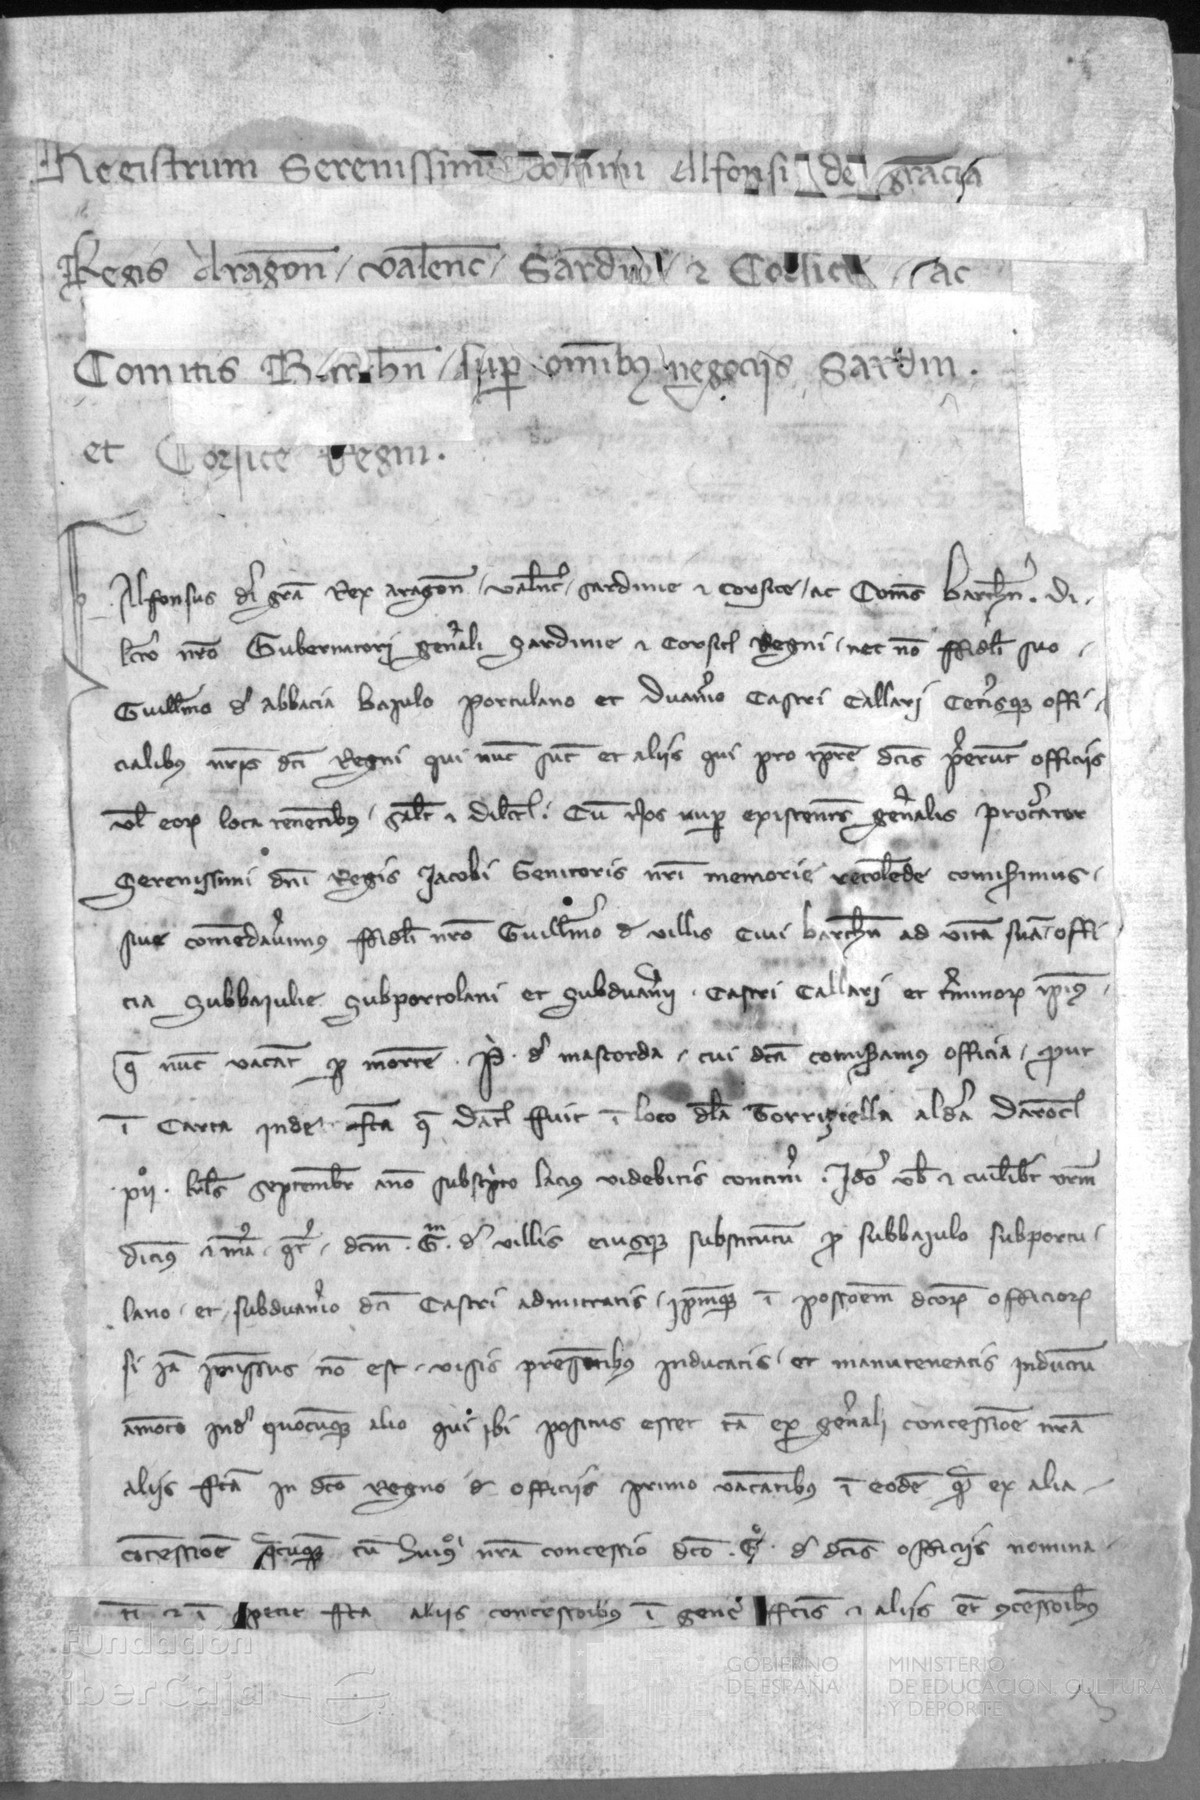 Registrum Serenissimi domini Alfonsi dei gracia
Regis Aragon, Valenc, Sardin et Corsice, ac
Comitis Barchn super omibus negociis Sardin.
et Corsice Regni.
Alfonsus di gra Rex aragon, valenc, Sardinie et corsice, ac Comes barchn. Di-
lcto nro Gubernatori genali Sardinie et corsice Regni, nec no ffideli suo
Guillmo d abbacia baiulo portulano et duanio Castri Callari Cetisque offi-
cialibus nris dci Regni qui nuc sut et aliis qui pro tpre dcis perunt officiis
vl eor loca tenentibus, salt et dilcc. Cu Nos nup existentes genalis procator
Serenissimi dni Regis Jacobi Genitoris nri memorie recolede comisimus
sive comendavimus ffideli nro Guillmo d villis civi barchn ad vita sua offi-
cia Subbaiulie Subportolani et Subduanii Castri Callari et tminor ipius
q nuc vacat p morte P. d mascorda, cui dca comiseramus officia, prout
i Carta inde fca q Dat ffuit i loco dla Torriziella aldea Daroce
klds septembr ano subscpto lacius videbitis contineri. Ido vob et cuilibet vrm
dicimus et ma. dcm. G. d villis eiusque substitutu p subbaiulo subportu-
lano et subduanio dci Castri admitatis, ipmque i possoem dcor officior
si ia imissus no est, visis presetibus inducatis et manuteneatis inductu
amoto ind quocuque alio qui ibi positus esset ta ex genali concessioe nra
aliis fca in dco Regno d officiis primo vacatibus i eode q ex alia
cocessioe qcuque cu huius nra concessio dco. G. d dcis officiis nomina-
ti et i specie fca aliis concessoibus i gene ffcis et aliis et cessoibus
Fundación
iberCaja
GOBIERNO
DE ESPAÑA
MINISTERIO
DE EDUCACIÓN, CULTURA
Y DEPORTE